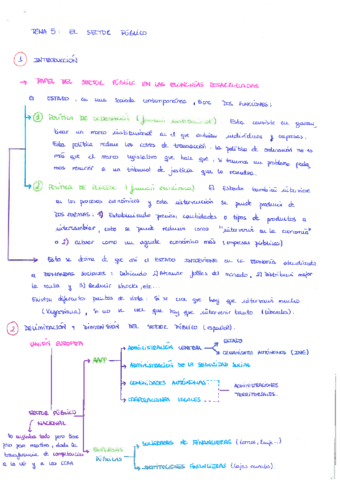 TEMA 5: EL SECTOR PÚBLICO
1 INTRODUCCIÓN
→ PAPEL DEL SECTOR PÚBLICO EN LAS ECONOMÍAS DESARROLLADAS
El ESTADO, en una sociedad contemporánea, tiene DOS FUNCIONES:
1 POLÍTICA DE ORDENACIÓN Esta consiste en garan-
tizar un marco institucional en el que actúan individuos y empresas.
Esta política reduce los costes de transacción. La política de ordenación no es
más que el marco legislativo que hace que, si tenemos un problema poda-
mos recurrir a un tribunal de justicia que lo resuelva.
2 POLÍTICA DE El Estado también interviene
en los procesos económicos y esta intervención se puede producir de
DOS FORMAS: 1) Estableciendo precios, cantidades o tipos de productos a
intercambiar, esto se puede reducir como "intervenir en la economía"
o 2) actuar como un agente económico más (empresas públicas)
Esto se deriva de que así el ESTADO INTERVIENE en la ECONOMÍA atendiendo
a DEMANDAS SOCIALES: 1) Atenuar fallos del mercado, 2) Distribuir mejor
la renta y 3) Reducir shocks, etc...
Existen diferentes puntos de vista: Si se cree que hay que intervenir mucho
(Keynesianos), si no se cree que hay que intervenir tanto (liberales).
2 DELIMITACIÓN Y DIMENSIÓN DEL SECTOR PÚBLICO (español).
UNIÓN EUROPEA
AAPP
→ ADMINISTRACIÓN CENTRAL
→ ESTADO
→ ORGANISMOS AUTÓNOMOS (INE)
→ ADMINISTRACIÓN DE LA SEGURIDAD SOCIAL
→ COMUNIDADES AUTÓNOMAS
→ CORPORACIONES LOCALES
ADMINISTRACIONES
TERRITORIALES.
SECTOR PÚBLICO
NACIONAL
EMPRESAS
PÚBLICAS
→ SOCIEDADES NO FINANCIERAS
→ INSTITUCIONES FINANCIERAS
a la UE y a las CCAA